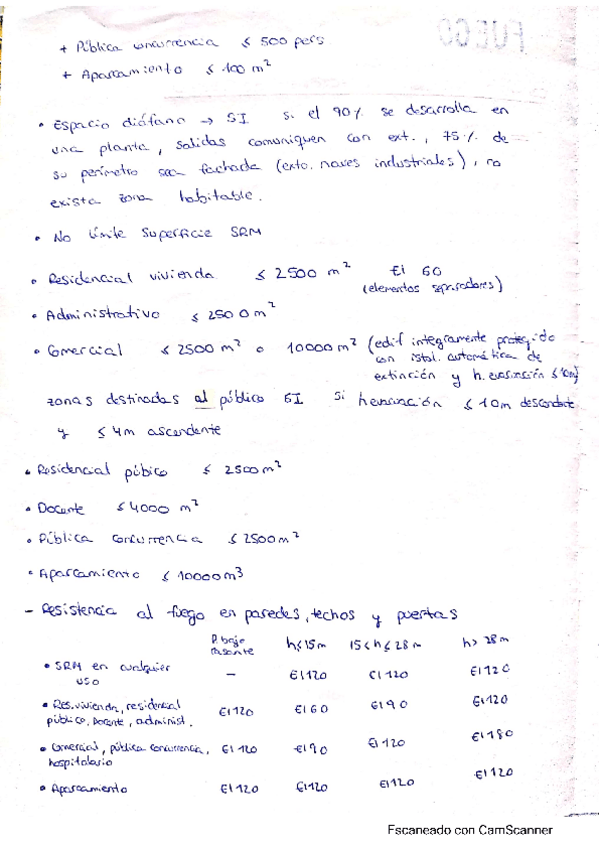 + Pública concurrencia ≤ 500 pers
+ Aparcamiento ≤ 100 m²
• Espacio diáfano → SI si el 90% se desarrolla en
una planta, salidas comuniquen con ext., 75% de
su perímetro sea fachada (exto. naves industriales), no
exista zona habitable.
• No límite superficie SRM
• Residencial vivienda ≤ 2500 m² EI 60
(elementos separadores)
• Administrativo ≤ 2500 m²
• Comercial ≤ 2500 m² o 10000 m² (edif integramente protegido
con istal. automática de
extinción y h. evacuación ≤ 10m)
zonas destinadas al público SI si hevacuación ≤ 10m descendente
y ≤ 4m ascendente
• Residencial púbico ≤ 2500 m²
• Docente ≤ 4000 m²
• Pública concurrencia ≤ 2500 m²
• Aparcamiento ≤ 10000 m³
- Resistencia al fuego en paredes, techos y puertas
P. bajo rasante h≤15m 15<h≤28m h>28m
• SRM en cualquier uso — EI120 EI120 EI120
• Res. vivienda, residencial público, Docente, administ. EI120 EI60 EI90 EI120
• Comercial, pública concurrencia, hospitalario EI120 EI90 EI120 EI180
• Aparcamiento EI120 EI120 EI120 EI120
Escaneado con CamScanner